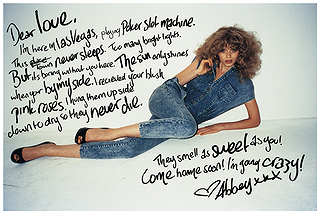 Dear love,
I'm here in Las Vegas, playing Poker slot machine.
This town never sleeps. Too many bright lights.
But its boring without you here. The sun only shines
when your by my side. I recieved your blush
pink roses. I hung them up side
down to dry so they never die.
They smell as sweet as you!
Come home soon! I'm going crazy!
Abbey xxx